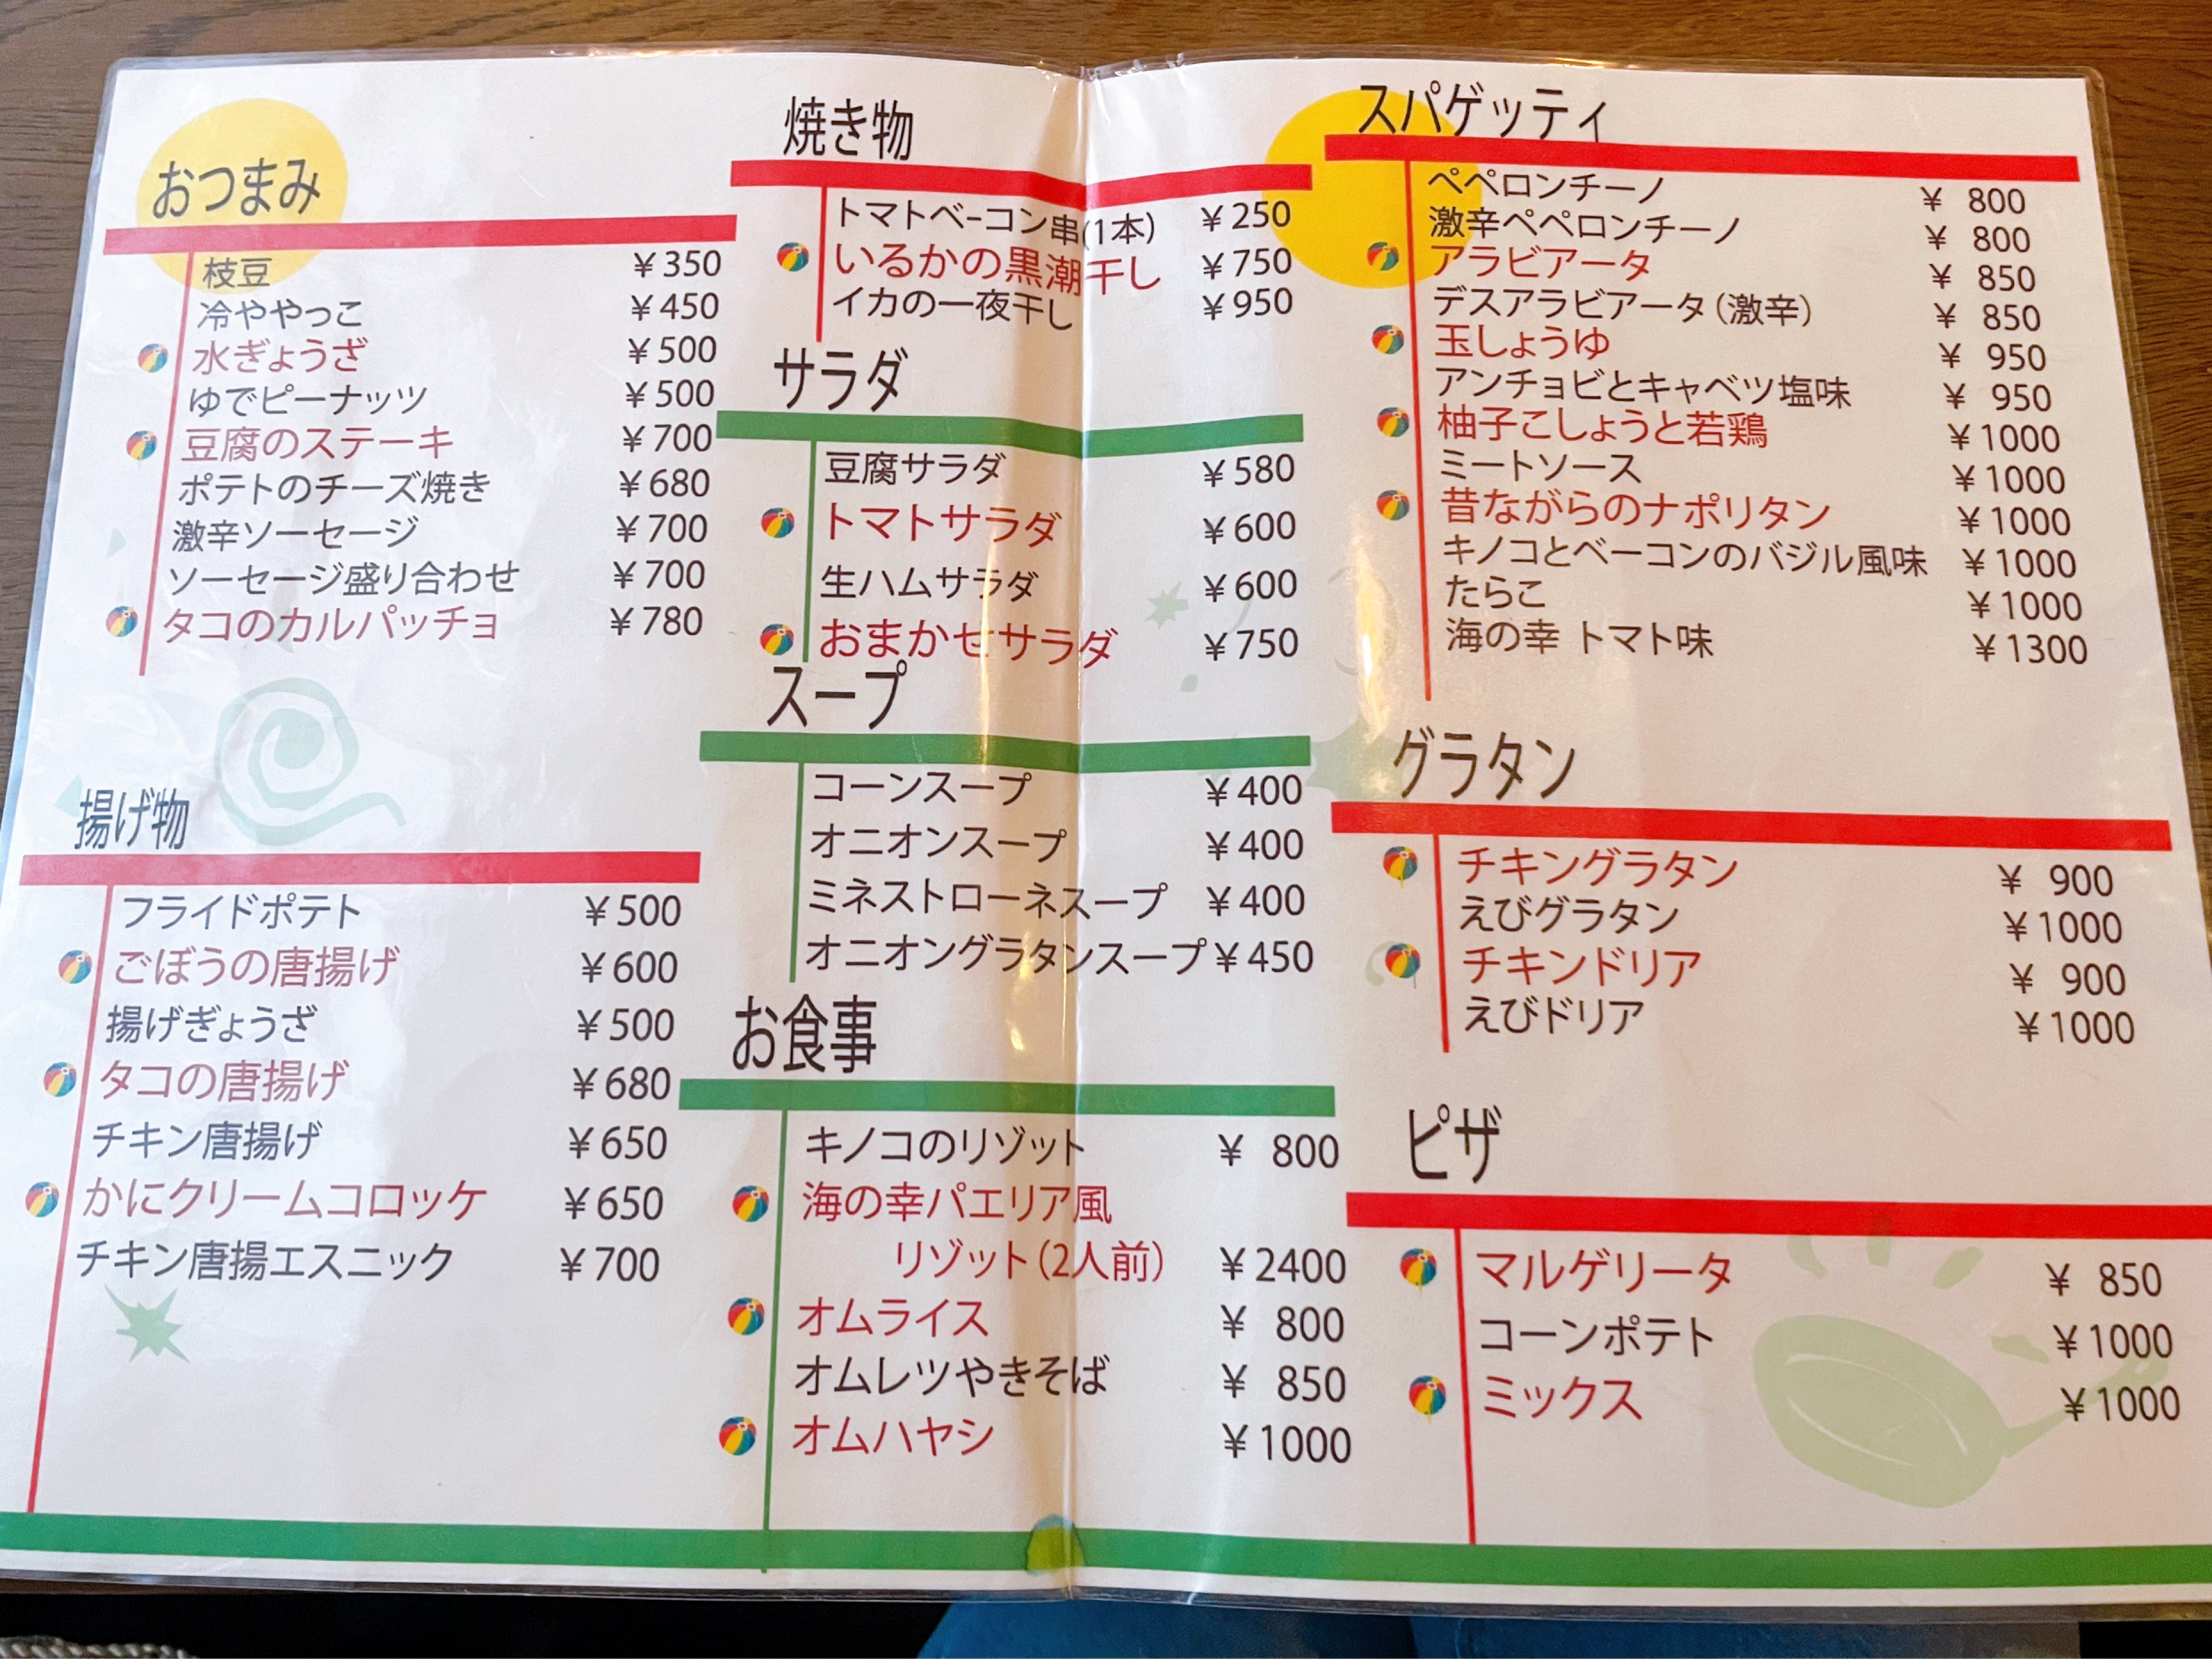 おつまみ
枝豆 ¥350
冷ややっこ ¥450
水ぎょうざ ¥500
ゆでピーナッツ ¥500
豆腐のステーキ ¥700
ポテトのチーズ焼き ¥680
激辛ソーセージ ¥700
ソーセージ盛り合わせ ¥700
タコのカルパッチョ ¥780
揚げ物
フライドポテト ¥500
ごぼうの唐揚げ ¥600
揚げぎょうざ ¥500
タコの唐揚げ ¥680
チキン唐揚げ ¥650
かにクリームコロッケ ¥650
チキン唐揚エスニック ¥700
焼き物
トマトベーコン串(1本) ¥250
いるかの黒潮干し ¥750
イカの一夜干し ¥950
サラダ
豆腐サラダ ¥580
トマトサラダ ¥600
生ハムサラダ ¥600
おまかせサラダ ¥750
スープ
コーンスープ ¥400
オニオンスープ ¥400
ミネストローネスープ ¥400
オニオングラタンスープ ¥450
お食事
キノコのリゾット ¥ 800
海の幸パエリア風
リゾット(2人前) ¥2400
オムライス ¥ 800
オムレツやきそば ¥ 850
オムハヤシ ¥1000
スパゲッティ
ペペロンチーノ ¥ 800
激辛ペペロンチーノ ¥ 800
アラビアータ ¥ 850
デスアラビアータ(激辛) ¥ 850
玉しょうゆ ¥ 950
アンチョビとキャベツ塩味 ¥ 950
柚子こしょうと若鶏 ¥1000
ミートソース ¥1000
昔ながらのナポリタン ¥1000
キノコとベーコンのバジル風味 ¥1000
たらこ ¥1000
海の幸 トマト味 ¥1300
グラタン
チキングラタン ¥ 900
えびグラタン ¥1000
チキンドリア ¥ 900
えびドリア ¥1000
ピザ
マルゲリータ ¥ 850
コーンポテト ¥1000
ミックス ¥1000